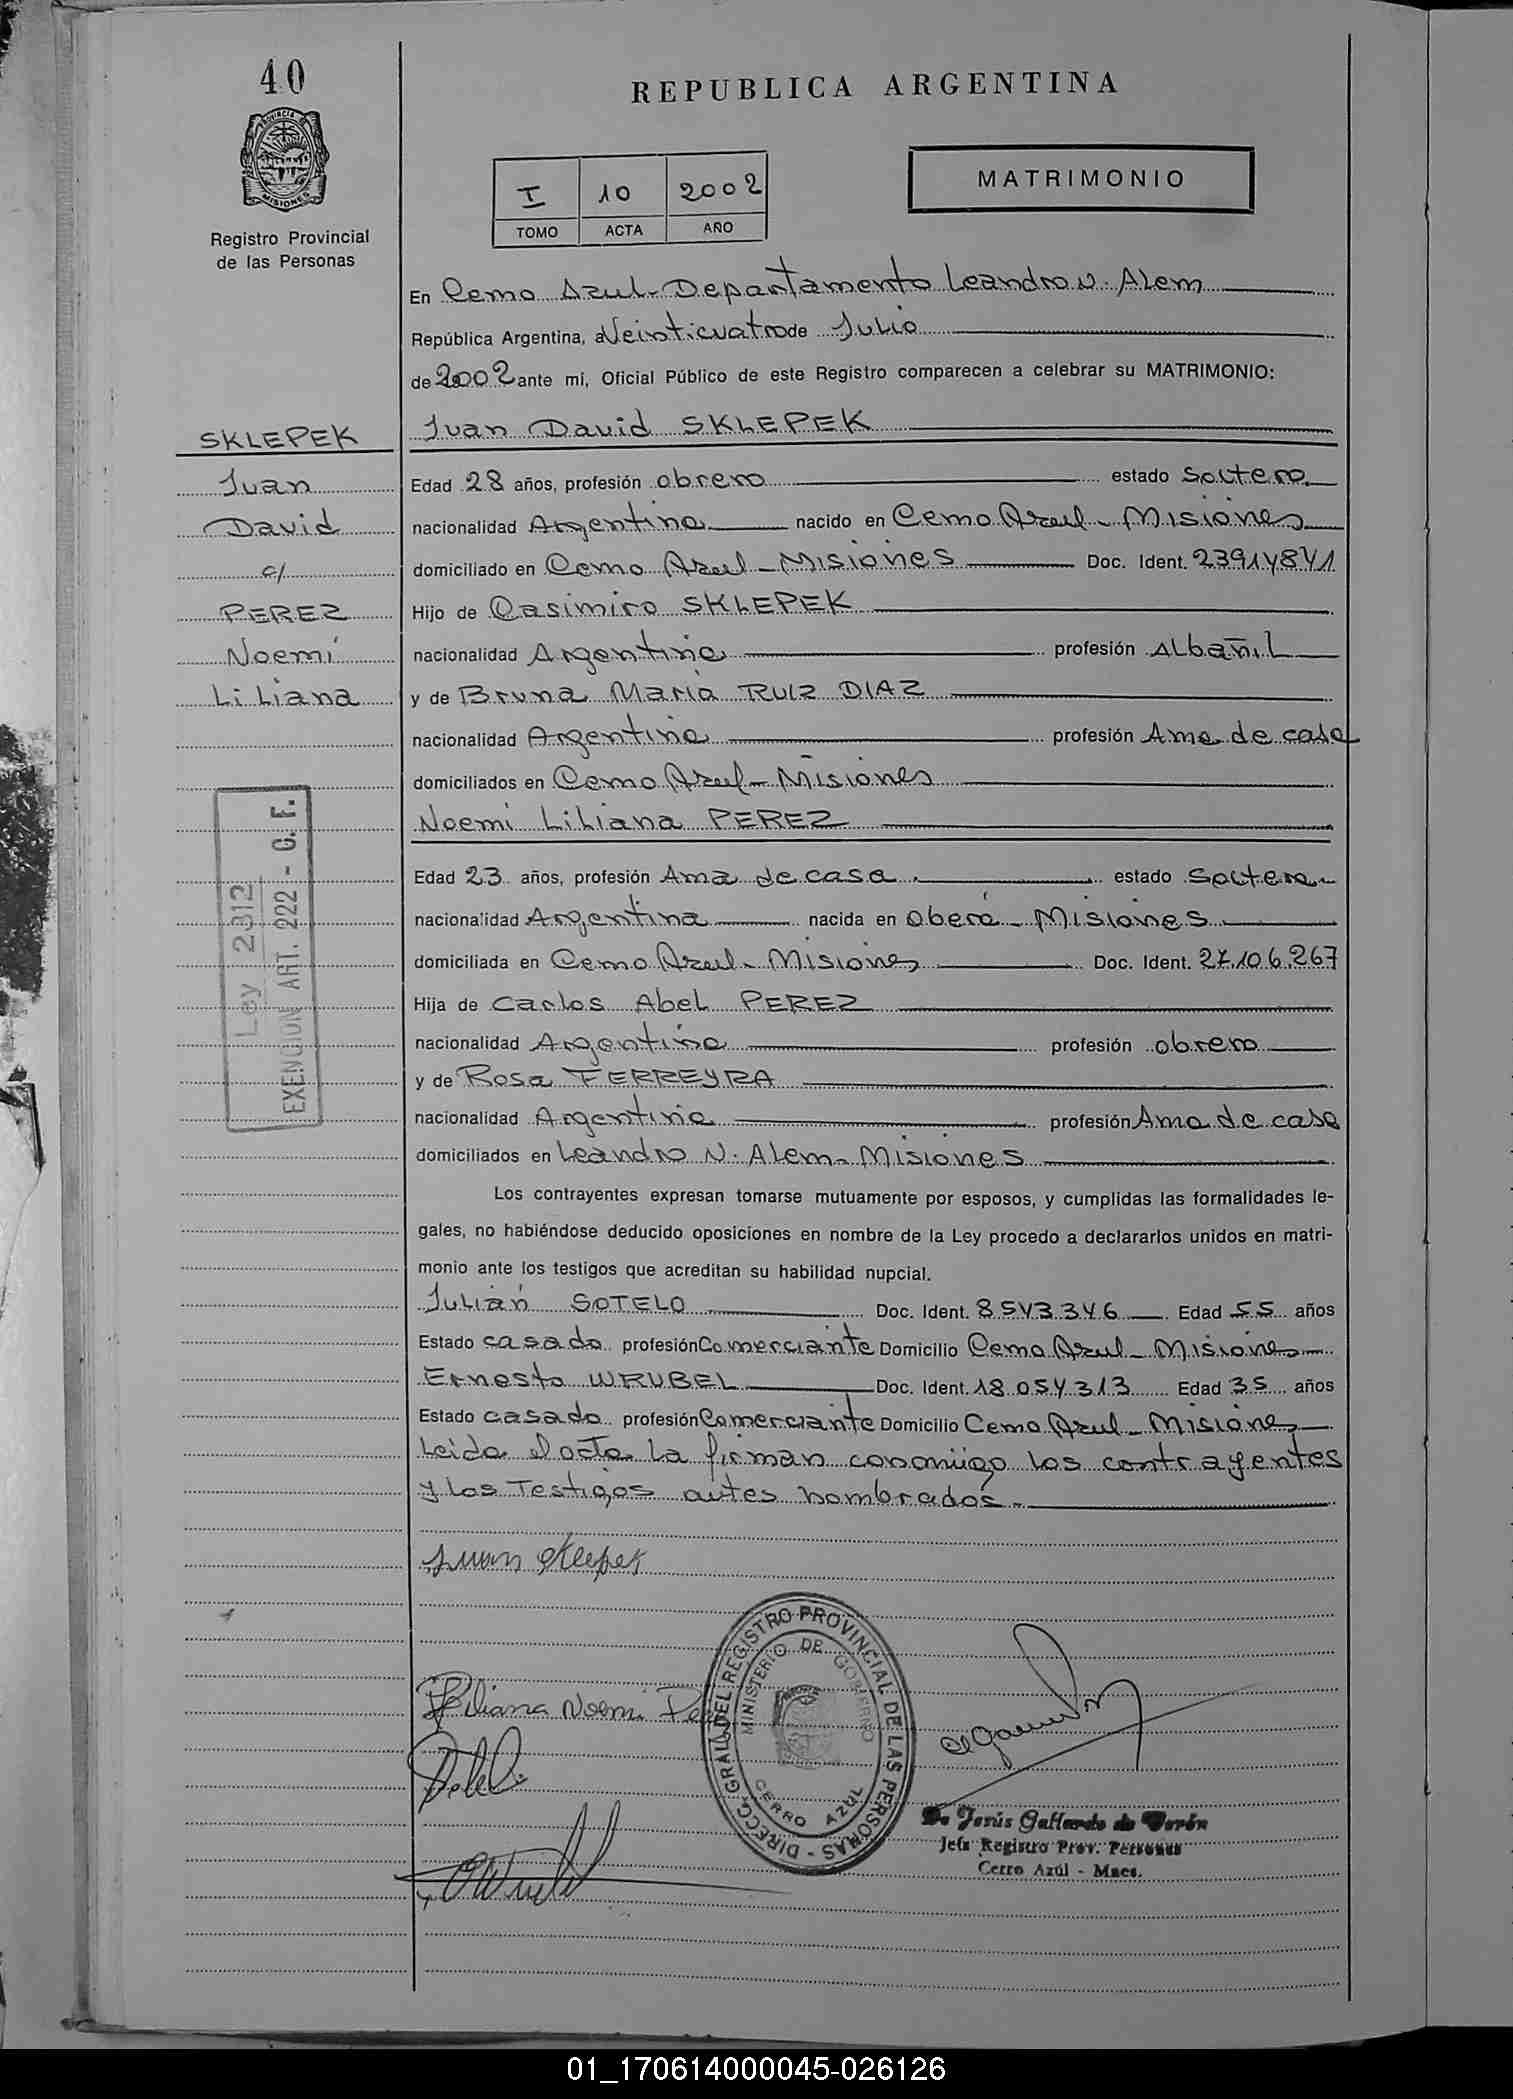 40
PROVINCIA DE
MISIONES
Registro Provincial
de las Personas
REPUBLICA ARGENTINA
I 10 2002
TOMO ACTA AÑO
MATRIMONIO
En Cerro Azul-Departamento Leandro N. Alem
República Argentina, a Veinticuatro de Julio
de 2002 ante mí, Oficial Público de este Registro comparecen a celebrar su MATRIMONIO:
Juan David SKLEPEK
SKLEPEK
Juan
David
c/
PEREZ
Noemi
Liliana
Edad 28 años, profesión obrero estado soltero
nacionalidad Argentina nacido en Cerro Azul-Misiones
domiciliado en Cerro Azul-Misiones Doc. Ident. 23914841
Hijo de Casimiro SKLEPEK
nacionalidad Argentina profesión Albañil
y de Bruna Maria RUIZ DIAZ
nacionalidad Argentina profesión Ama de casa
domiciliados en Cerro Azul-Misiones
Noemi Liliana PEREZ
Edad 23 años, profesión Ama de casa estado soltera
nacionalidad Argentina nacida en Oberá-Misiones
domiciliada en Cerro Azul-Misiones Doc. Ident. 27.106.267
Hija de Carlos Abel PEREZ
nacionalidad Argentina profesión obrero
y de Rosa FERREYRA
nacionalidad Argentina profesión Ama de casa
domiciliados en Leandro N. Alem-Misiones
Ley 2312
EXENCION ART. 222 - C. F.
Los contrayentes expresan tomarse mutuamente por esposos, y cumplidas las formalidades le-
gales, no habiéndose deducido oposiciones en nombre de la Ley procedo a declararlos unidos en matri-
monio ante los testigos que acreditan su habilidad nupcial.
Julián SOTELO Doc. Ident. 8543346 Edad 55 años
Estado casado profesión Comerciante Domicilio Cerro Azul-Misiones
Ernesto WRUBEL Doc. Ident. 18.054.313 Edad 35 años
Estado casado profesión Comerciante Domicilio Cerro Azul-Misiones
Leida el acta la firman conmigo los contrayentes
y los Testigos antes nombrados.
Juan Sklepek
Liliana Noemi Perez
DIRECC. GRAL. DEL REGISTRO PROVINCIAL DE LAS PERSONAS -
MINISTERIO DE GOBIERNO
CERRO AZUL
De Jesús Gallardo de Verón
Jefa Registro Prov. Personas
Cerro Azúl - Mnes.
01_170614000045-026126